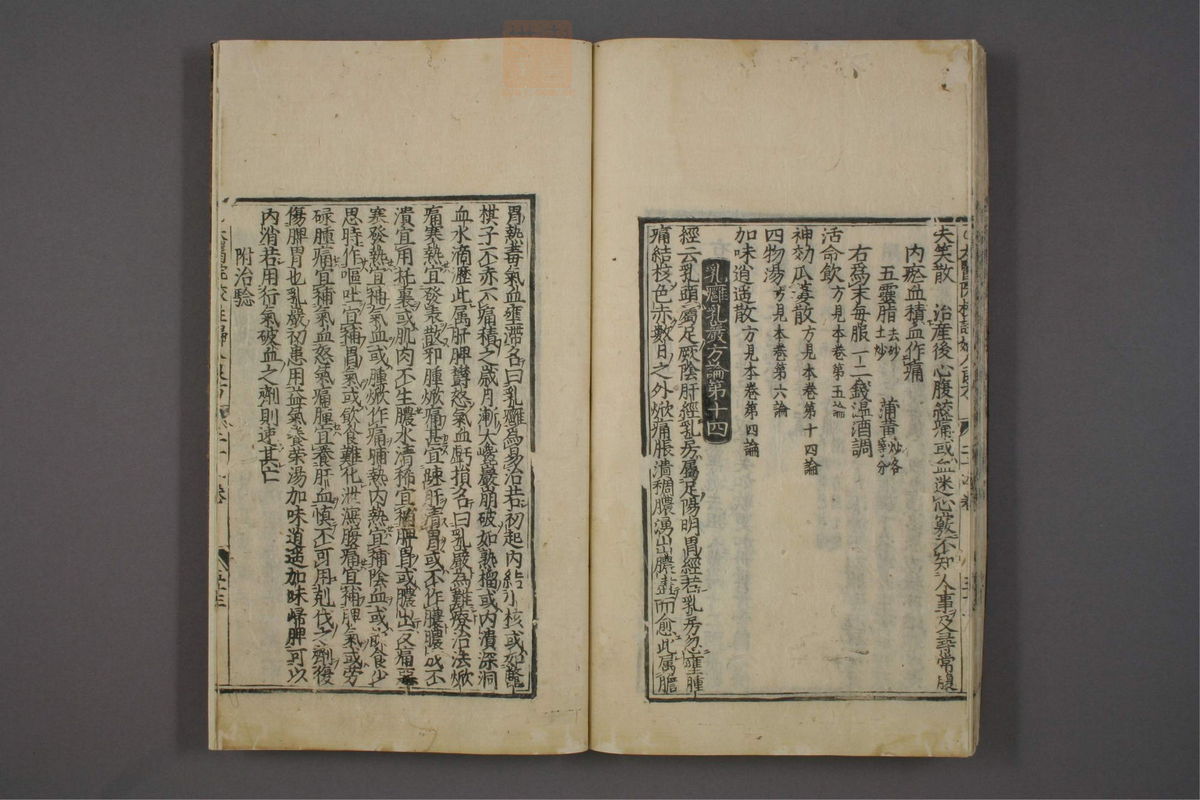 失笑散　治産後心腹㽲痛或血迷心竅不知人事及尋常腹
内瘀血積血作痛
五靈脂去砂土炒　蒲黄炒各等分
右爲末每服一二錢温酒調
活命飲方見本卷第五論
神効瓜蔞散方見本卷第十四論
四物湯方見本卷第六論
加味逍遥散方見本卷第四論
乳癰乳巖方論第十四
經云乳頭屬足厥陰肝經乳房屬足陽明胃經若乳房忽壅腫
痛結核色赤數日之外焮痛脹潰稠膿湧出膿盡而愈此属膽
胃熱毒氣血壅滯名曰乳癰爲易治若初起内結小核或如鱉
棋子不赤不痛積之歲月漸大巉巖崩破如熟榴或内潰深洞
血水滴瀝此属肝脾欝怒氣血虧損名曰乳巖為難療治法焮
痛寒熱宜發表散邪腫焮痛甚宜踈肝清胃或不作膿膿成不
潰宜用托裏或肌肉不生膿水清稀宜補脾胃或膿出反痛惡
寒發熱宜補氣血或腫焮作痛晡熱内熱宜補陰血或飲食少
思時作嘔吐宜補胃氣或飲食難化泄瀉腹痛宜補脾氣或劳
碌腫痛宜補氣血怒氣痛腫宜養肝血慎不可用剋伐之劑復
傷脾胃也乳巖初患用益氣養榮湯加味逍遥加味歸脾可以
内消若用行氣破血之劑則速其亡
附治驗